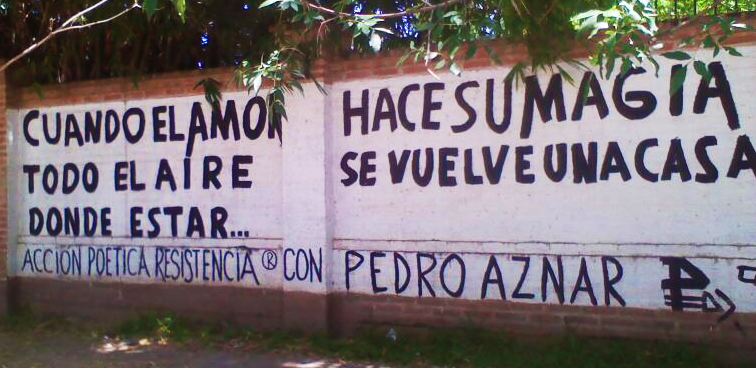 CUANDO EL AMOR HACE SU MAGIA
TODO EL AIRE SE VUELVE UNA CASA
DONDE ESTAR...
ACCIÓN POÉTICA RESISTENCIA ® CON PEDRO AZNAR